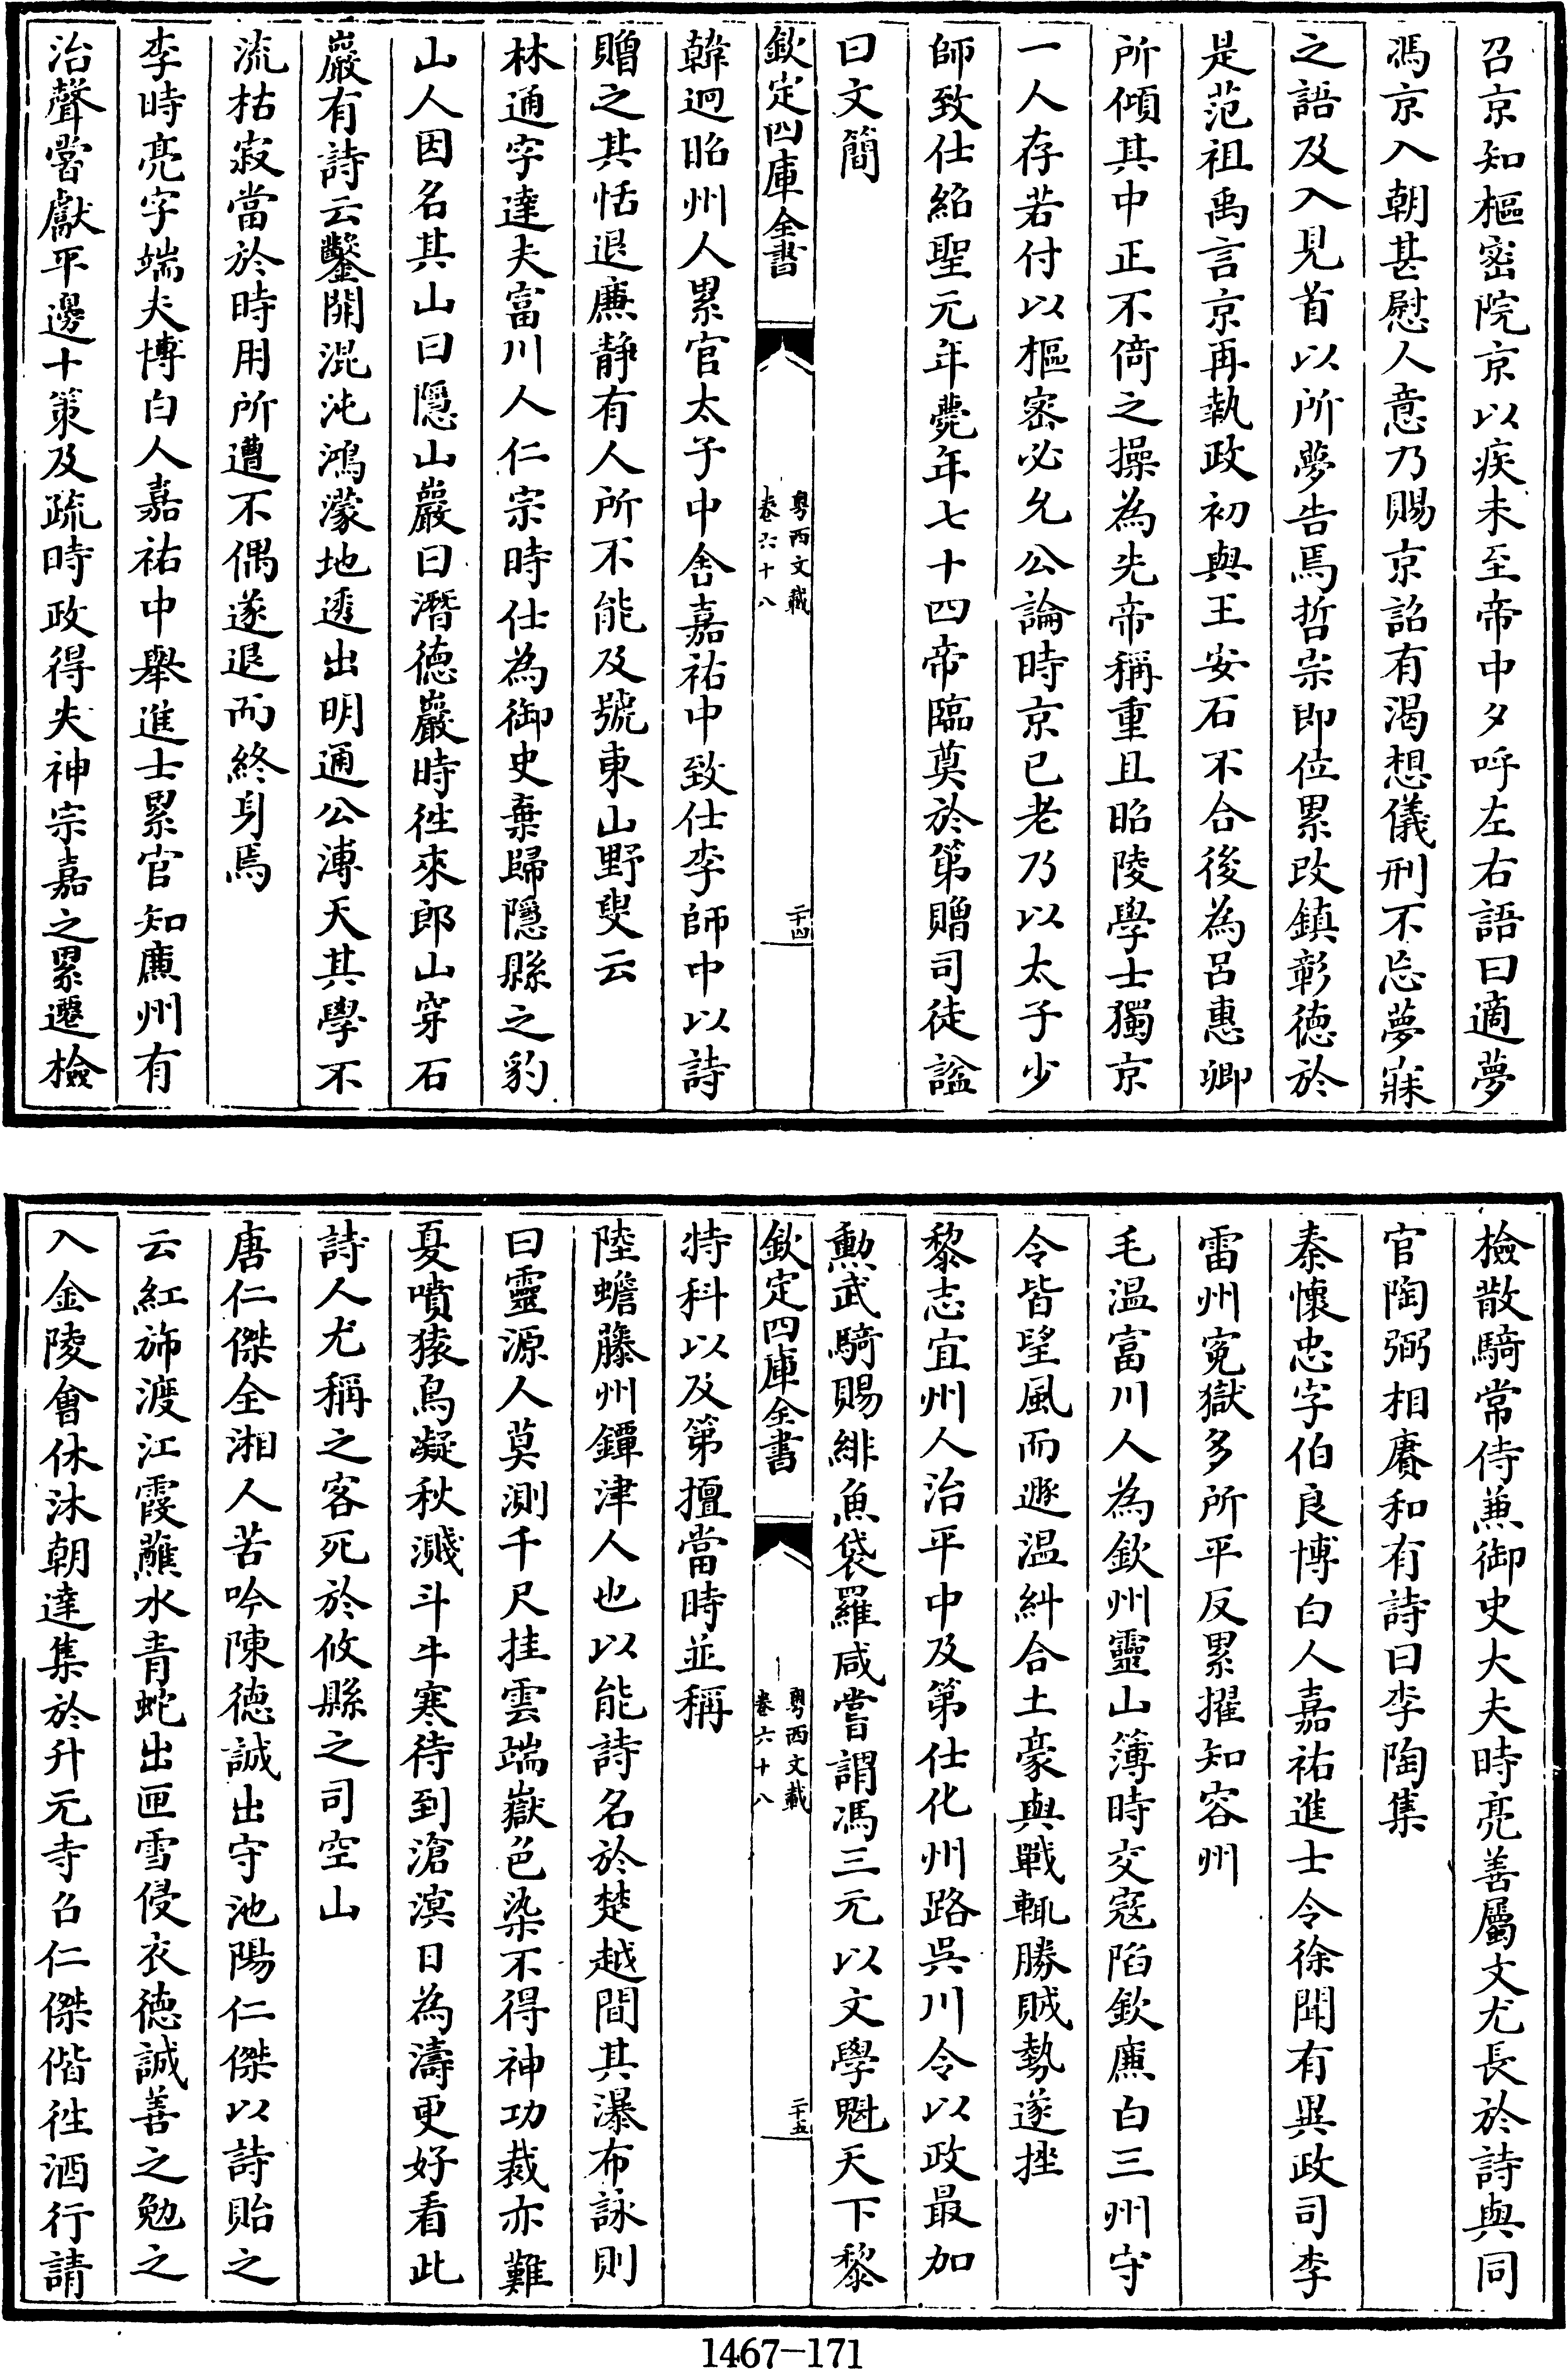 召京知樞密院京以疾未至帝中夕呼左右語曰適夢
馮京入朝甚慰人意乃賜京詔有渴想儀刑不忘夢寐
之語及入見首以所夢告焉哲宗即位累改鎮彰德於
是范祖禹言京再執政初與王安石不合後為呂惠卿
所傾其中正不倚之操為先帝稱重且昭陵學士獨京
一人存若付以樞密必允公論時京已老乃以太子少
師致仕紹聖元年薨年七十四帝臨奠於第贈司徒諡
曰文簡
欽定四庫全書
粵西文載
卷六十八
二十四
韓迥昭州人累官太子中舍嘉祐中致仕李師中以詩
贈之其恬退廉静有人所不能及號東山野叟云
林通字達夫富川人仁宗時仕為御史棄歸隱縣之豹
山人因名其山曰隱山巖曰潛德巖時徃來郎山穿石
巖有詩云鑿開混沌鴻濛地透出明通公溥天其學不
流枯寂當於時用所遭不偶遂退而終身焉
李時亮字端夫博白人嘉祐中舉進士累官知廉州有
治聲嘗獻平邊十策及疏時政得失神宗嘉之累遷檢
檢散騎常侍兼御史大夫時亮善屬文尤長於詩與同
官陶弼相賡和有詩曰李陶集
秦懷忠字伯良博白人嘉祐進士令徐聞有異政司李
雷州寃獄多所平反累擢知容州
毛温富川人為欽州靈山簿時交寇陷欽廉白三州守
令皆望風而遯温糾合土豪與戰輒勝賊勢遂挫
黎志宜州人治平中及第仕化州路吳川令以政最加
勲武騎賜緋魚袋羅咸嘗謂馮三元以文學魁天下黎
欽定四庫全書
粵西文載
卷六十八
二十五
持科以及第擅當時並稱
陸蟾藤州鐔津人也以能詩名於楚越間其瀑布詠則
曰靈源人莫測千尺挂雲端嶽色染不得神功裁亦難
夏噴猿鳥凝秋濺斗牛寒待到滄溟日為濤更好看此
詩人尤稱之客死於攸縣之司空山
唐仁傑全湘人苦吟陳德誠出守池陽仁傑以詩貽之
云紅斾渡江霞蘸水青蛇出匣雪侵衣德誠善之勉之
入金陵會休沐朝達集於升元寺召仁傑偕徃酒行請
1467-171